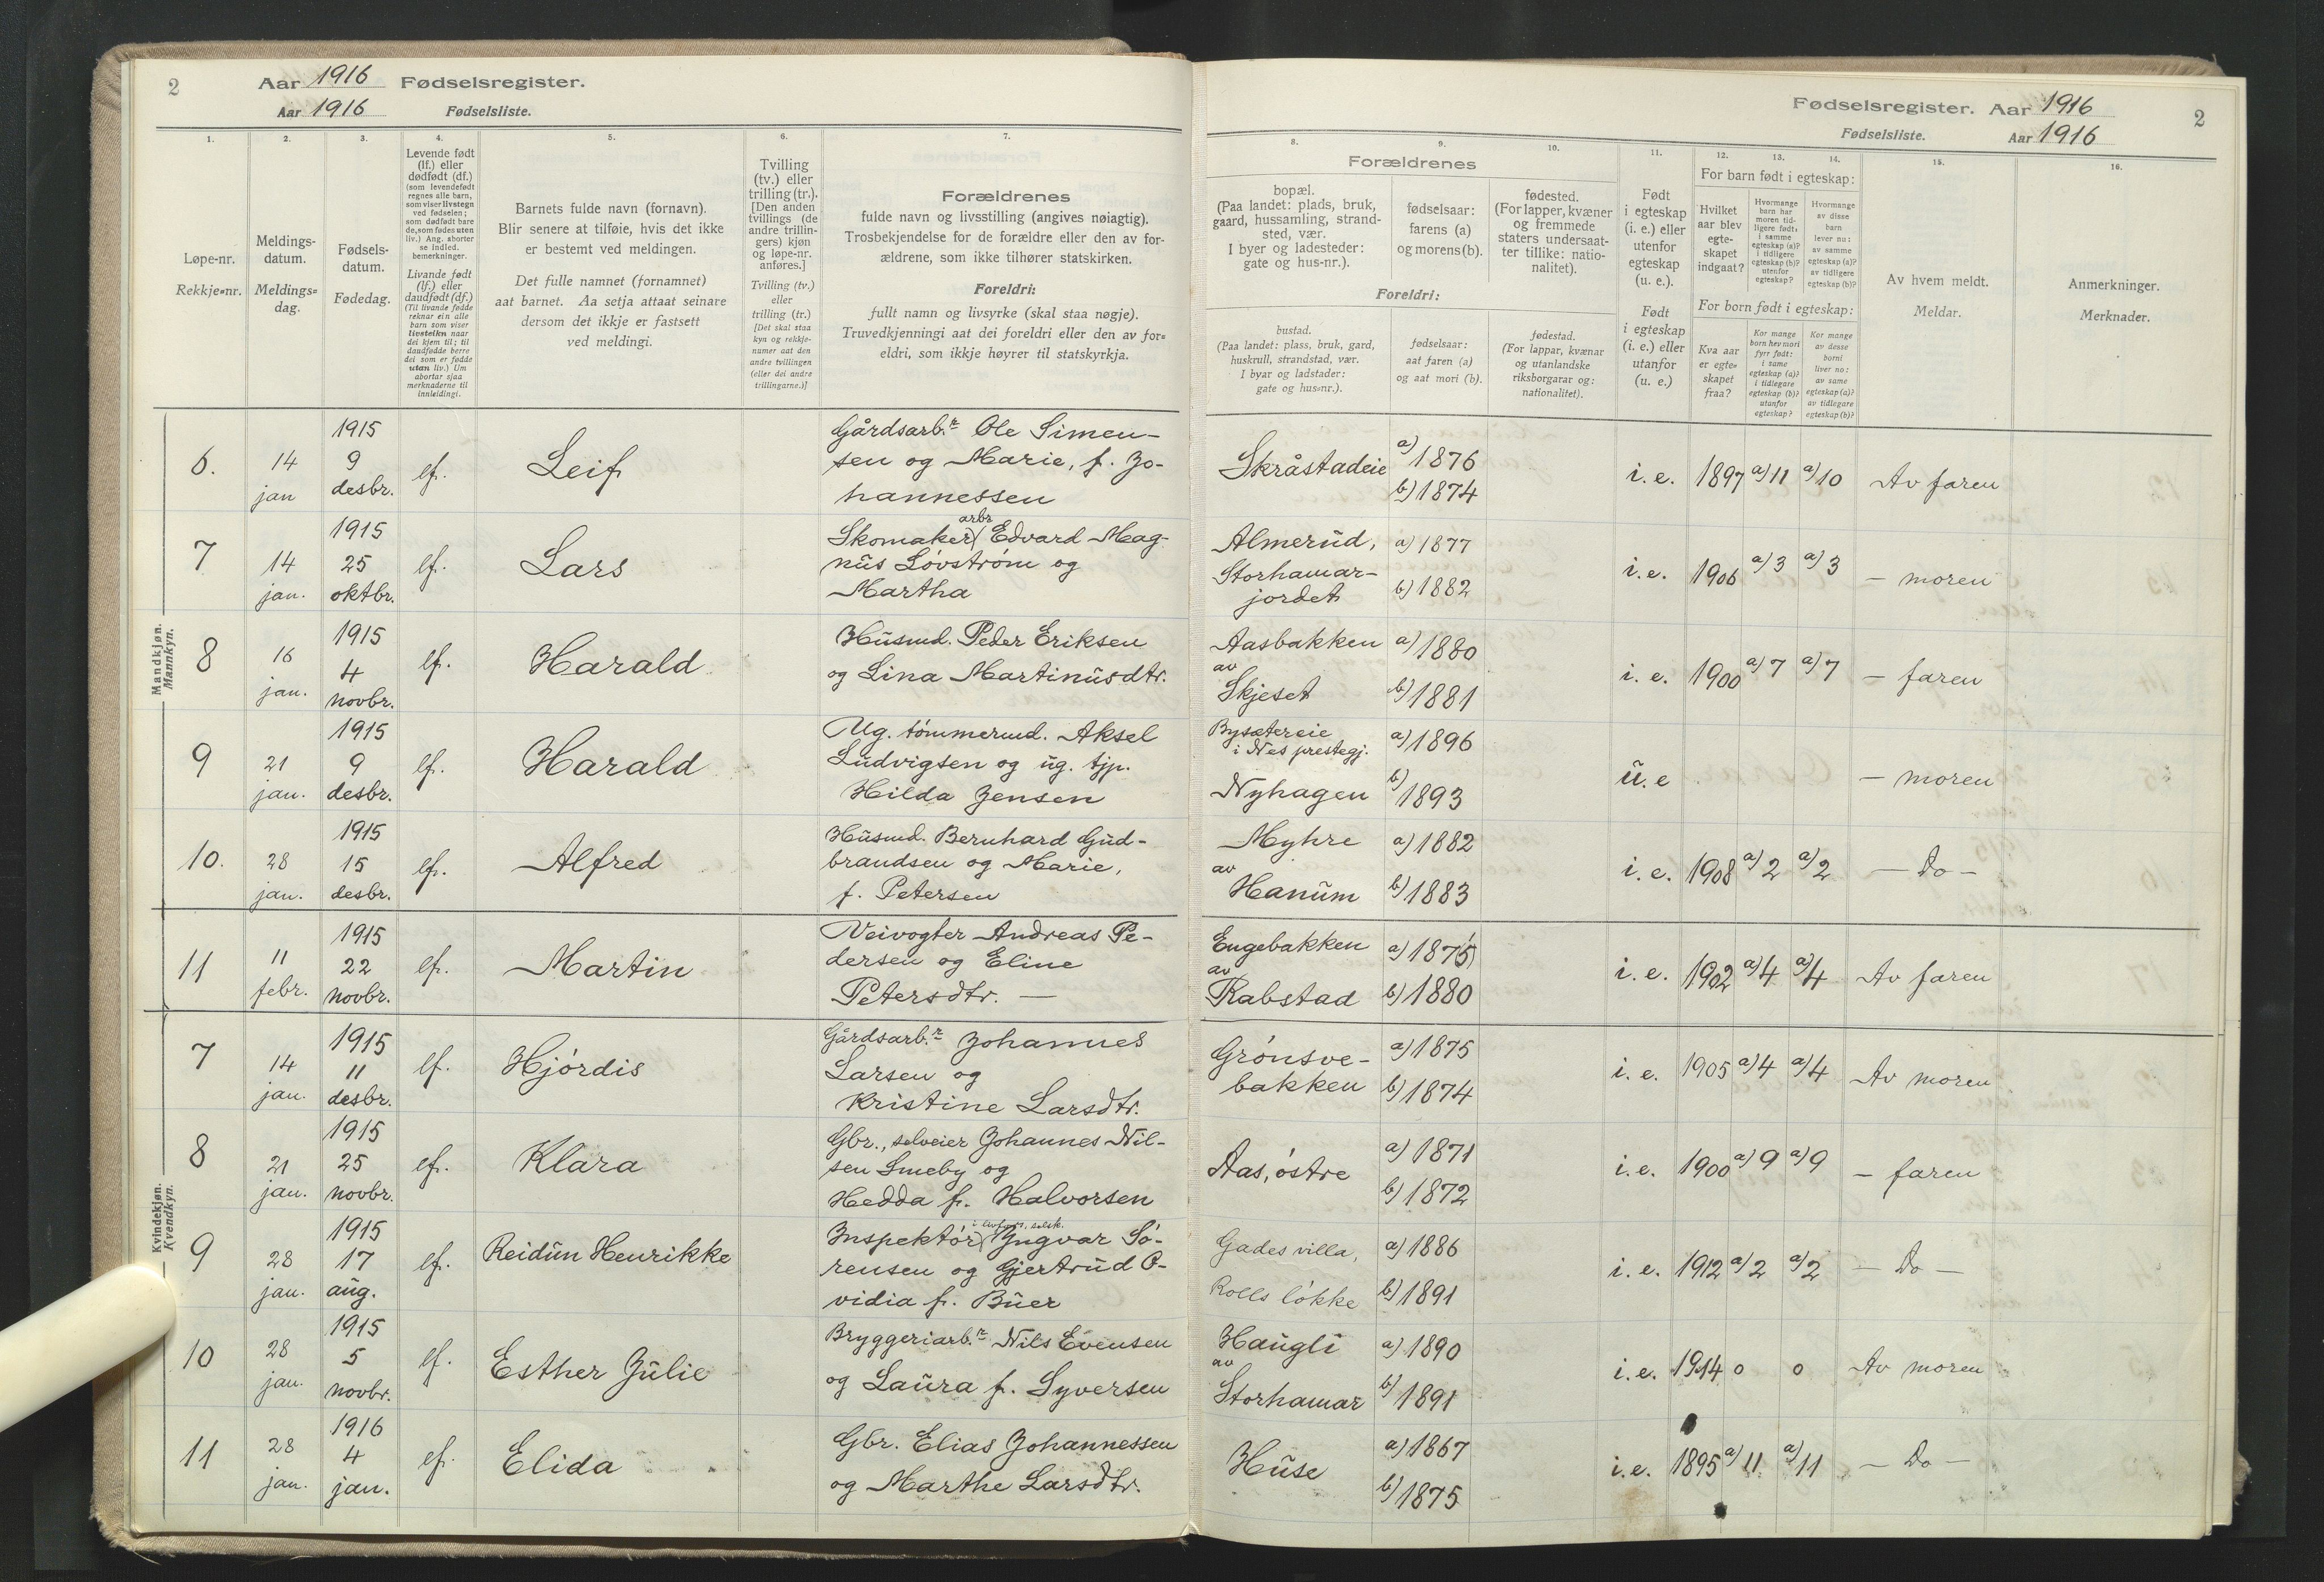 2
Aar 1916 Fødselsregister.
Aar 1916 Fødselsliste.
1. 2. 3. 4. 5. 6. 7.
Løpe-nr.
Rekkje-nr.
Meldings-
datum.
Meldings-
dag.
Fødsels-
datum.
Fødedag.
Levende født
(lf.) eller
dødfødt (df.)
(som levendefødt
regnes alle barn,
som viser livstegn
ved fødselen;
som dødfødt bare
de, som fødes uten
liv.) Ang. aborter
se indled.
bemerkninger.
Livande født
(lf.) eller
daudfødt (df.)
(Til livande fødde
reknar ein alle
barn som viser
livsteikn naar
dei kjem til; til
daudfødde berre
dei som er fødde
utan liv.) Um
abortar sjaa
merknaderne til
innleidingi.
Barnets fulde navn (fornavn).
Blir senere at tilføie, hvis det ikke
er bestemt ved meldingen.
Det fulle namnet (fornamnet)
aat barnet. Aa setja attaat seinare
dersom det ikkje er fastsett
ved meldingi.
Tvilling
(tv.) eller
trilling (tr.).
[Den anden
tvillings (de
andre trillin-
gers) kjøn
og løpe-nr.
anføres.]
Tvilling (tv.)
eller
trilling (tr.)
[Det skal staa
kyn og rekkje-
numer aat den
andre tvillingen
(eller dei andre
trillingarne.)]
Forældrenes
fulde navn og livsstilling (angives nøiagtig).
Trosbekjendelse for de forældre eller den av for-
ældrene, som ikke tilhører statskirken.
Foreldri:
fullt namn og livsyrke (skal staa nøgje).
Truvedkjenningi aat dei foreldri eller den av for-
eldri, som ikkje høyrer til statskyrkja.
Mandkjøn.
Mannkyn.
6.
14
jan
1915
9
desbr.
lf.
Leif
Gårdsarb.r Ole Simen-
sen og Marie, f. Jo-
hannessen
7
14
jan.
1915
25
oktbr.
lf.
Lars
arbr
Skomaker Edvard Mag-
nus Lövström og
Martha
8
16
jan.
1915
4
novbr.
lf.
Harald
Husmd. Peder Eriksen
og Lina Martinusdtr.
9
21
jan.
1915
9
desbr.
lf.
Harald
Ug. tömmermd. Aksel
Ludvigsen og ug. tjp.
Hilda Jensen
10.
28
jan.
1915
15
desbr.
lf.
Alfred
Husmd. Bernhard Gud-
brandsen og Marie,
f. Petersen
11
11
febr.
1915
22
novbr.
lf.
Martin
Veivogter Andreas Pe-
dersen og Eline
Petersdtr. —
Kvindekjøn.
Kvendkyn.
7
14
jan.
1915
11
desbr.
lf.
Hjördis
Gårdsarb.r Johannes
Larsen og
Kristine Larsdtr.
8
21
jan.
1915
25
novbr.
lf.
Klara
Gbr., selveier Johannes Nil-
sen Smeby og
Hedda f. Halvorsen
9
28
jan.
1915
17
aug.
lf.
Reidun Henrikke
Inspektör Ingvar Sö-
rensen og Gjertrud O-
vidia f. Buer
10
28
jan.
1915
5
novbr.
lf.
Esther Julie
Bryggeriarb.r Nils Evensen
og Laura f. Syversen
11
28
jan.
1916
4
jan.
lf.
Elida
Gbr. Elias Johannessen
og Marthe Larsdtr.
Fødselsregister. Aar 1916
Fødselsliste. Aar 1916
2
8. 9. 10. 11. 12. 13. 14. 15. 16.
Forældrenes
bopæl.
(Paa landet: plads, bruk,
gaard, hussamling, strand-
sted, vær.
I byer og ladesteder:
gate og hus-nr.).
fødselsaar:
farens (a)
og morens (b).
fødested.
(For lapper, kvæner
og fremmede
staters undersaat-
ter tillike: natio-
nalitet).
Foreldri:
bustad.
(Paa landet: plass, bruk, gard,
huskrull, strandstad, vær.
I byar og ladstader:
gate og hus-nr.).
fødselsaar:
aat faren (a)
og aat mori (b).
fødestad.
(For lappar, kvænar
og utanlandske
riksborgarar og:
nationalitet).
Født
i egteskap
(i. e.) eller
utenfor
egteskap
(u. e.).
Født
i egteskap
(i. e.) eller
utanfor
(u. e.)
For barn født i egteskap:
Hvilket
aar blev
egte-
skapet
indgaat?
Hvormange
barn har
moren tid-
ligere født:
i samme
egteskap (a)?
i tidligere
egteskap (b)?
utenfor
egteskap?
Hvormange
av disse
barn
lever nu:
av samme
egteskap (a)?
av tidligere
egteskap (b)?
For born født i egteskap:
Kva aar
er egte-
skapet
fraa?
Kor mange
born hev mori
fyrr født:
i same
egteskap (a)?
i tidlegare
egteskap (b)?
utanfor
egteskap?
Kor mange
av desse
borni
liver no:
av same
egteskap (a)?
av tidlegare
egteskap (b)?
Av hvem meldt.
Meldar.
Anmerkninger.
Merknader.
Skråstadeie
a) 1876
b) 1874
i. e. 1897 a) 11 a) 10 Av faren
Almerud,
Storhamar-
jordet
a) 1877
b) 1882
i. e. 1906 a) 3 a) 3 — moren
Aasbakken
av
Skjeset
a) 1880
b) 1881
i. e. 1900 a) 7 a) 7 — faren
Bysætereie
i Nes prestegj.
Nyhagen
a) 1896
b) 1893
u. e — moren
Myhre
av
Hanum
a) 1882
b) 1883
i. e. 1908 a) 2 a) 2 — Do —
Engebakken
av
Rabstad
a) 1875
b) 1880
i. e. 1902 a) 4 a) 4 Av faren
Grönsve-
bakken
a) 1875
b) 1874
i. e. 1905 a) 4 a) 4 Av moren
Aas, östre
a) 1871
b) 1872
i. e. 1900 a) 9 a) 9 — faren
Gades villa,
Rolls lökke
a) 1886
b) 1891
i. e. 1912 a) 2 a) 2 — Do —
Haugli
av
Storhamar
a) 1890
b) 1891
i. e. 1914 0 0 Av moren
Huse
a) 1867
b) 1875
i. e. 1895 a) 11 a) 11 — Do —